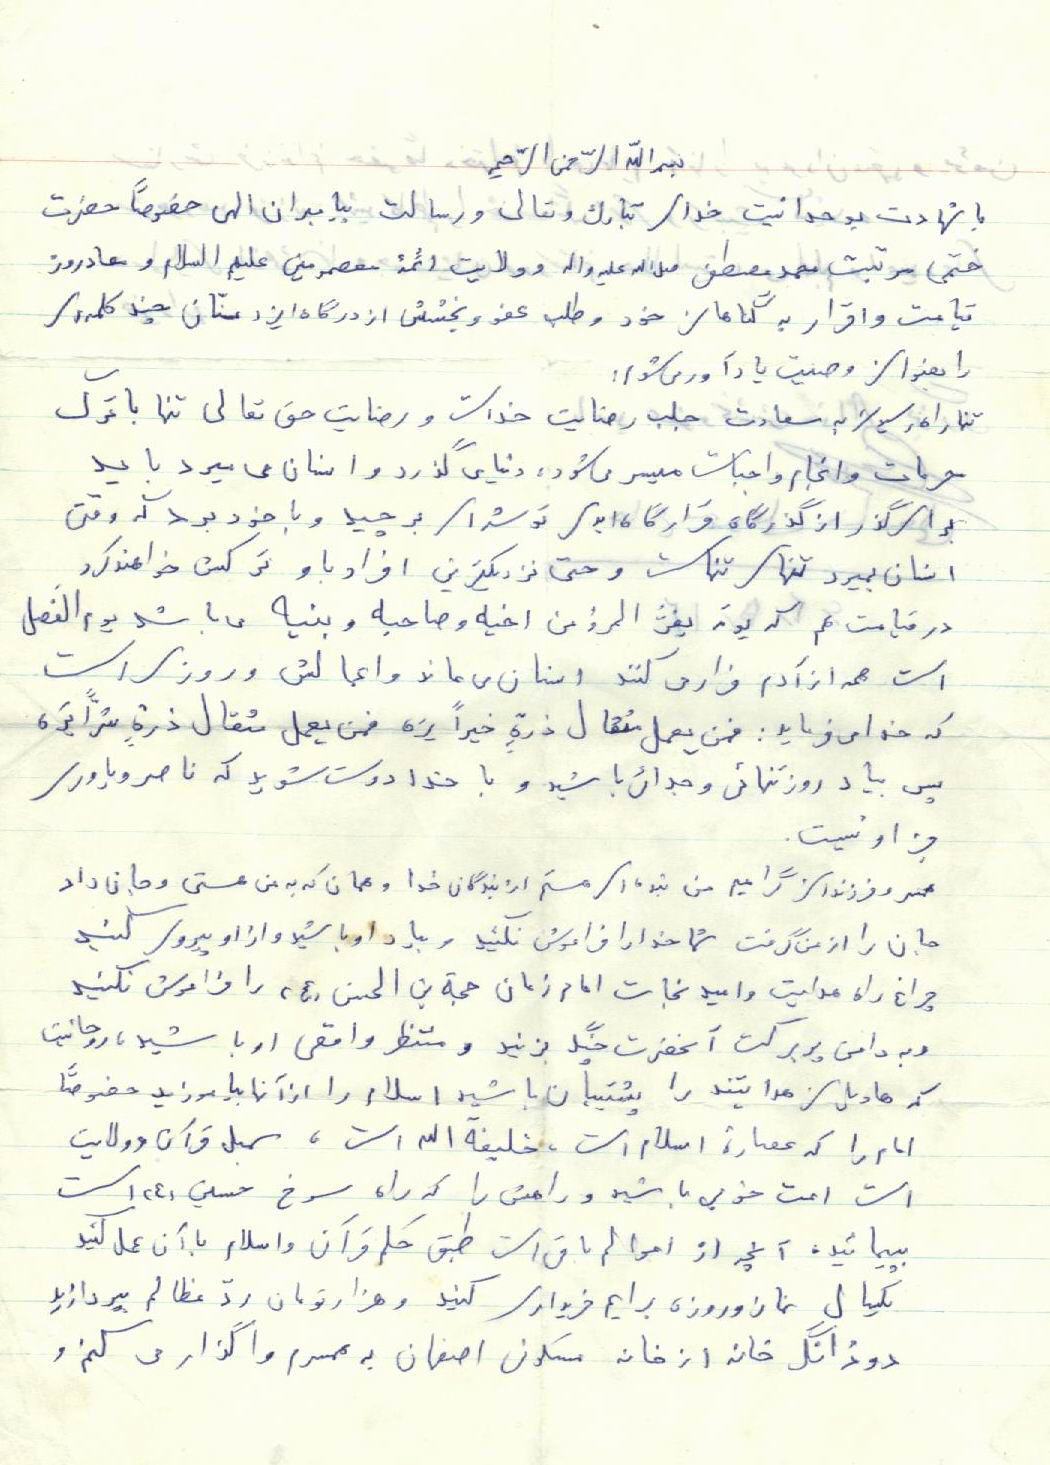 بسم الله الرّحمن الرّحیم
با شهادت بوحدانیت خدای تبارک و تعالی و رسالت پیامبران الهی خصوصاً حضرت
ختمی مرتبت محمد مصطفی صلی الله علیه و اله و ولایت ائمهٔ معصومین علیهم السلام و معاد روز
قیامت و اقرار به گناهان خود و طلب عفو و بخشش از درگاه ایزد منّان چند کلمه‌ای
را بعنوان وصیت یادآور می‌شوم:
تنها راه رسیدن به سعادت جلب رضایت خداست و رضایت حق تعالی تنها با ترک
محرمات و انجام واجبات میسر می‌شود، دنیا می‌گذرد و انسان می‌میرد باید
برای گذر از گذرگاه قرارگاه ابدی توشه‌ای برچید و با خود برد که وقتی
انسان بمیرد تنهای تنهاست و حتی نزدیکترین افراد باو ترکش خواهند کرد
در قیامت هم که یوم یفرّ المرؤ من اخیه و صاحبه و بنیه می‌باشد یوم الفصل
است همه از آدم فرار می‌کنند انسان می‌ماند و اعمالش و روزی است
که خدا می‌فرماید: فمن یعمل مثقال ذرةٍ خیراً یره فمن یعمل مثقال ذرةٍ شرّاً یره
پس بیاد روز تنهائی و جدائی باشید و با خدا دوست شوید که ناصر و یاوری
جز او نیست.
همسر و فرزندان گرامیم من بنده‌ای هستم از بندگان خدا و همان که به من هستی و جان داد
جان را از من گرفت شما خدا را فراموش نکنید و بیاد او باشید و از او پیروی کنید
چراغ راه هدایت و امید نجات امام زمان حجة بن الحسن (ع) را فراموش نکنید
و به دامن پر برکت آنحضرت چنگ بزنید و منتظر واقعی او باشید، روحانیت
که هادیان هدایتند را پشتیبان باشید اسلام را از آنها بیاموزید خصوصاً
امام را که عصارهٔ اسلام است، خلیفة الله است، سمبل قرآن و ولایت
است امت خوبی باشید و راهش را که راه سرخ حسین (ع) است
بپیمائید، آنچه از اموالم باقی است طبق حکم قرآن و اسلام با آن عمل کنید
یکسال نماز و روزه برایم خریداری کنید و هزار تومان ردّ مظالم بپردازید
دو دانگ خانه از خانه مسکونی اصفهان به همسرم واگذار می‌کنم و